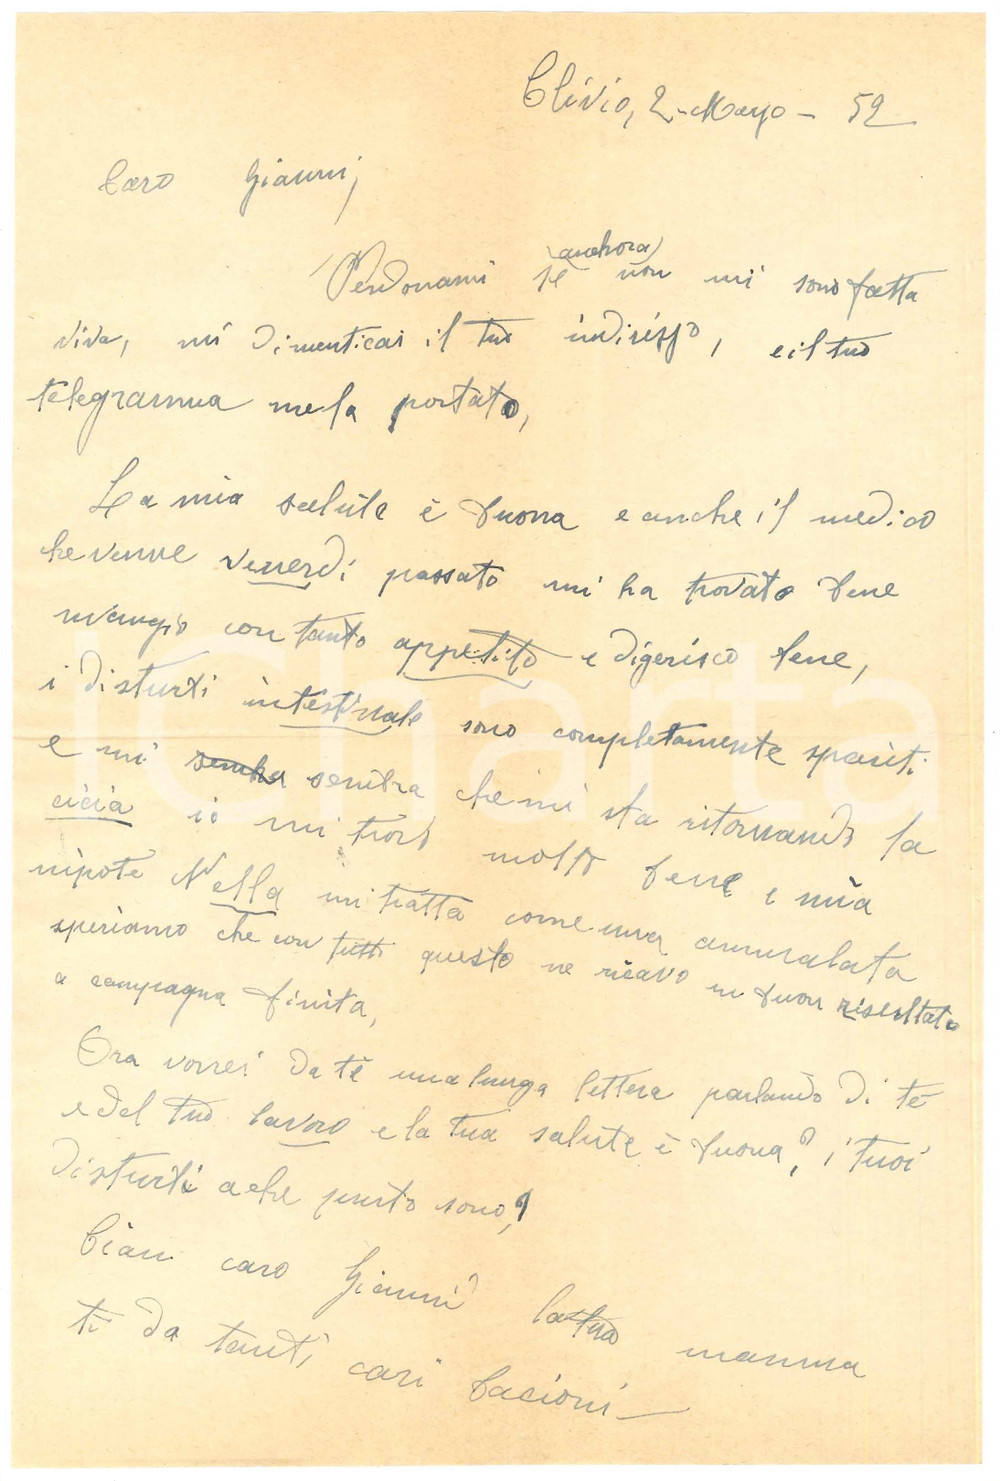 Clivio, 2 - Mayo - 52
Caro Gianni,
(anchora)
Perdonami se non mi sono fatta
viva, mi dimenticai il tuo indirizzo, e il tuo
telegramma me la portato,
La mia salute è buona e anche il medico
che venne venerdì passato mi ha trovato bene
mangio con tanto appetito e digerisco bene,
i disturbi intestinale sono completamente spariti
e mi sembra che mi sta ritornando la
cicia io mi trovo molto bene e mia
nipote Nella mi tratta come una ammalata
speriamo che con tutti questo ne ricavo un buon risultato
a campagna finita,
Ora vorrei da te una lunga lettera parlando di te
e del tuo lavoro e la tua salute è buona? i tuoi
disturbi a che punto sono?
Ciau caro Gianni la tua mamma
ti da tanti cari bacioni